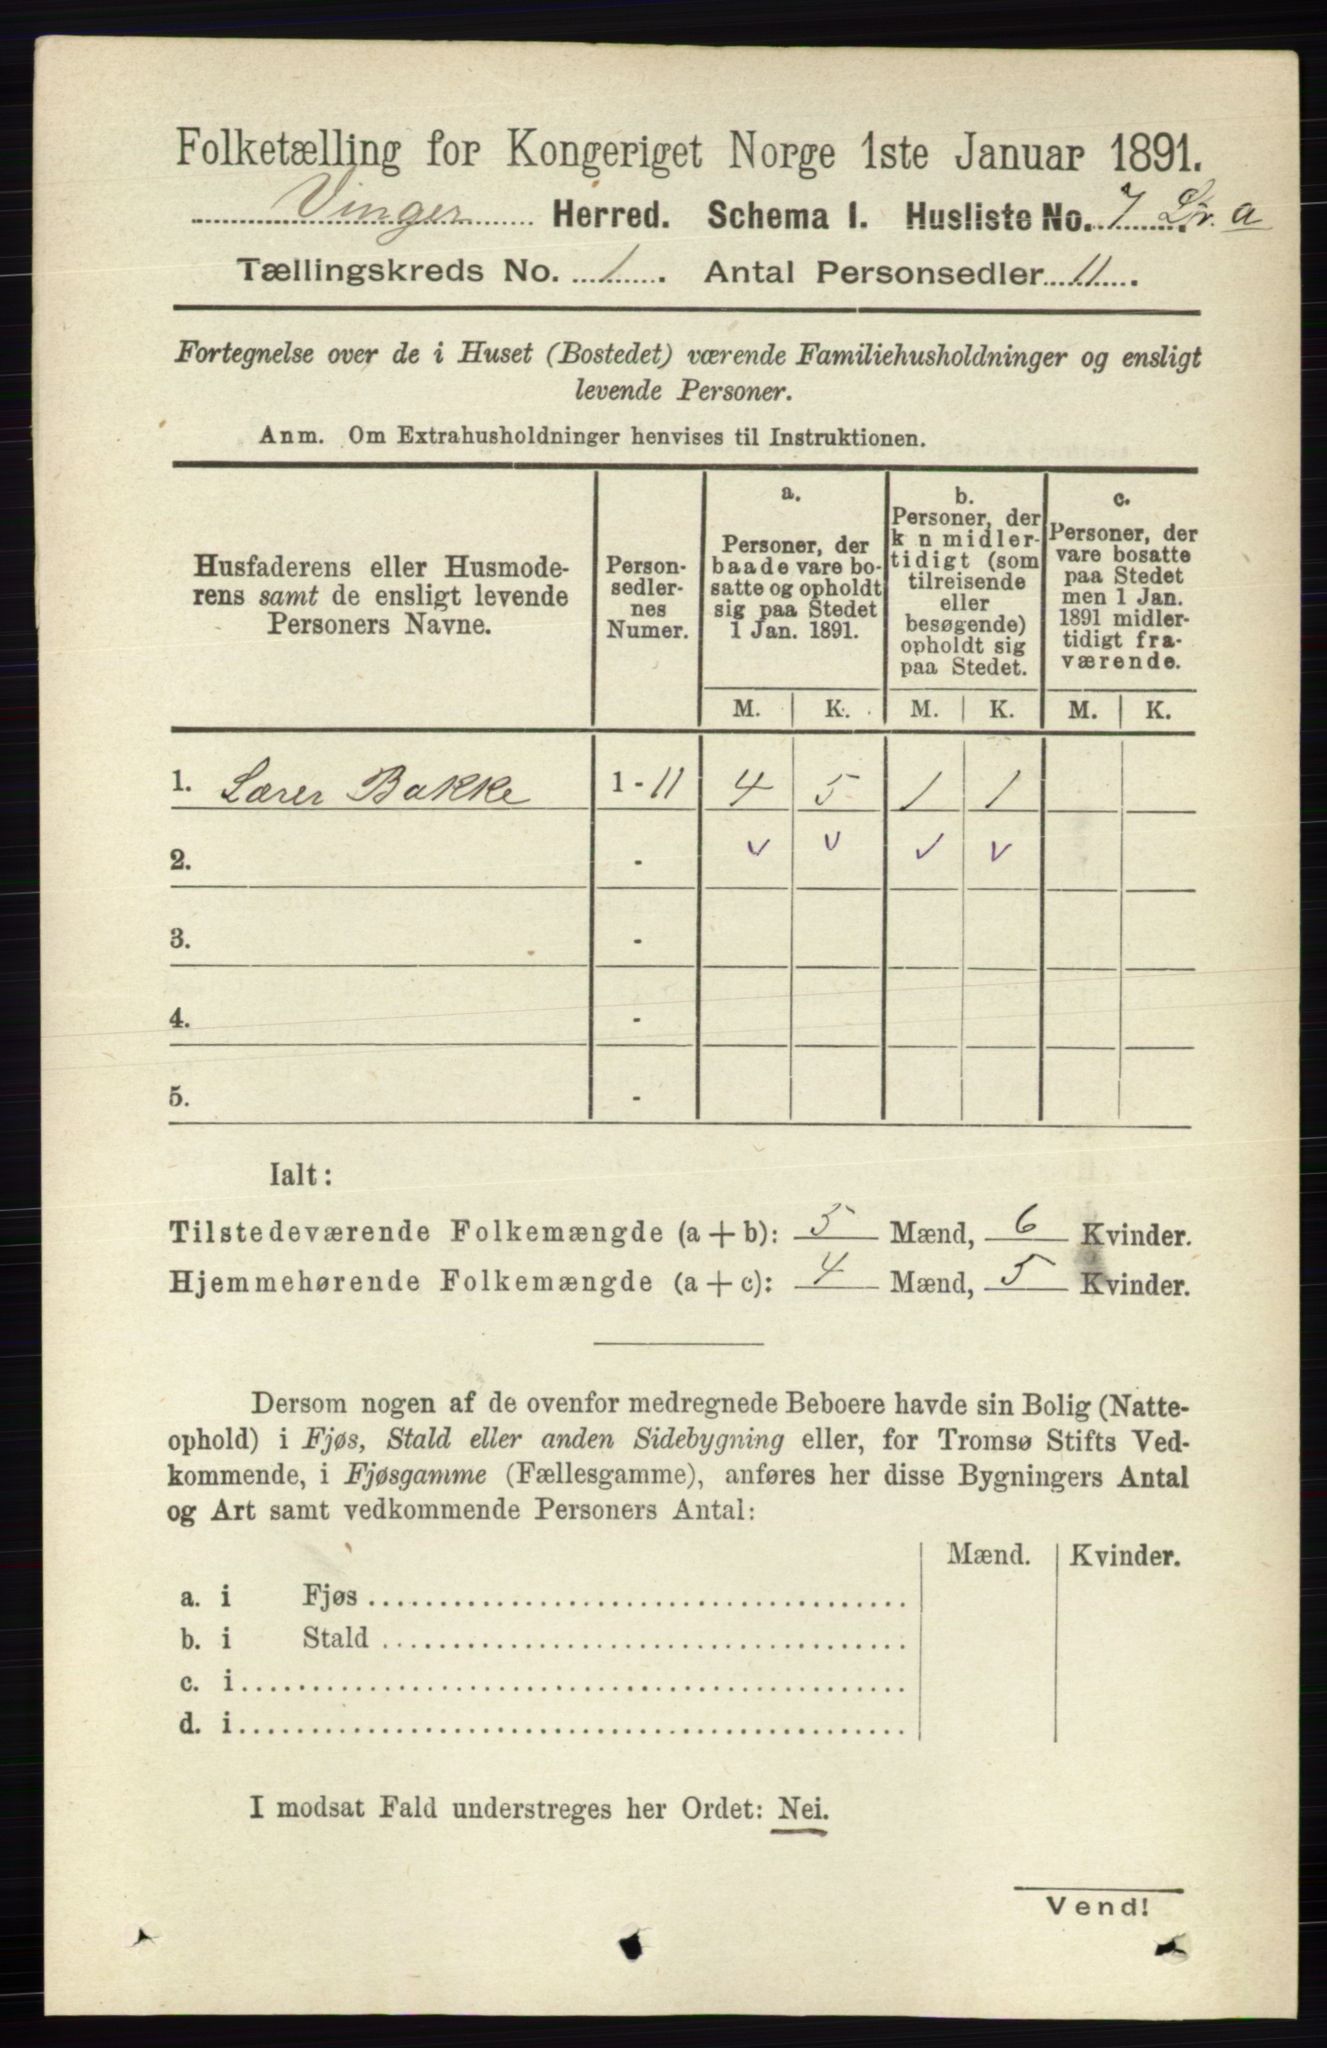 Folketælling for Kongeriget Norge 1ste Januar 1891.
Vinger Herred. Schema I. Husliste No. 7 Litr. a
Tællingskreds No. 1. Antal Personsedler 11.
Fortegnelse over de i Huset (Bostedet) værende Familiehusholdninger og ensligt
levende Personer.
Anm. Om Extrahusholdninger henvises til Instruktionen.
Husfaderens eller Husmode-
rens samt de ensligt levende
Personers Navne.
Person-
sedler-
nes
Numer.
a.
Personer, der
baade vare bo-
satte og opholdt
sig paa Stedet
1 Jan. 1891.
b.
Personer, der
k n midler-
tidigt (som
tilreisende
eller
besøgende)
opholdt sig
paa Stedet.
c.
Personer, der
vare bosatte
paa Stedet
men 1 Jan.
1891 midler-
tidigt fra-
værende.
M. K. M. K. M. K.
1. Lærer Bakke 1 - 11 4 5 1 1
2. - v v v v
3. -
4. -
5. -
Ialt:
Tilstedeværende Folkemængde (a + b): 5 Mænd, 6 Kvinder.
Hjemmehørende Folkemængde (a + c): 4 Mænd, 5 Kvinder.
Dersom nogen af de ovenfor medregnede Beboere havde sin Bolig (Natte-
ophold) i Fjøs, Stald eller anden Sidebygning eller, for Tromsø Stifts Ved-
kommende, i Fjøsgamme (Fællesgamme), anføres her disse Bygningers Antal
og Art samt vedkommende Personers Antal:
Mænd. Kvinder.
a. i Fjøs
b. i Stald
c. i
d. i
I modsat Fald understreges her Ordet: Nei.
Vend!